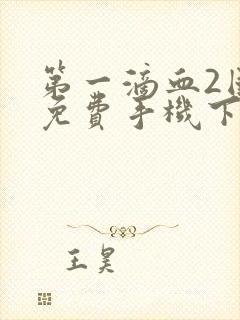 第一滴血2国
免費手機下
王昊